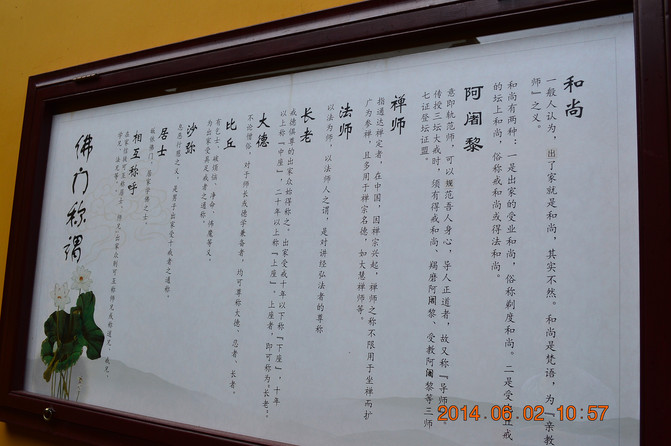 和尚
一般人认为，出了家就是和尚，其实不然。和尚是梵语，为『亲教
师』之义。
和尚有两种：一是出家的受业和尚，俗称剃度和尚。二是受
戒
的坛上和尚，俗称戒和尚或得法和尚。
阿阇黎
意即轨范师，可以规范吾人身心，导人正道者，故又称『导师』
传授三坛大戒时，须有得戒和尚、羯磨阿阇黎、受教阿阇黎等三师
七证登坛证盟。
禅师
指通达禅定者，在中国，因禅宗兴起，禅师之称不限用于坐禅而扩
广为参禅，且多用于禅宗名德，如大慧禅师等。
法师
以法为师，以法师人之谓，是对讲经弘法者的尊称
长老
戒德俱尊的出家众始得称之，出家受戒十年以下称『下座』，十年
以上称『中座』，二十年以上称『上座』，上座者，即可称为『长老』。
大德
不论僧俗，对于师长或德学兼备者，均可尊称大德、忍者、长者。
比丘
有乞士、破烦恼、净命、怖魔等义，
为出家受具足戒者之通称。
沙弥
息恶行慈之义，是男子出家受十戒者之通称。
居士
皈依佛门，居家学佛之士。
相互称呼
佛门称谓
2014.06.02 10:57